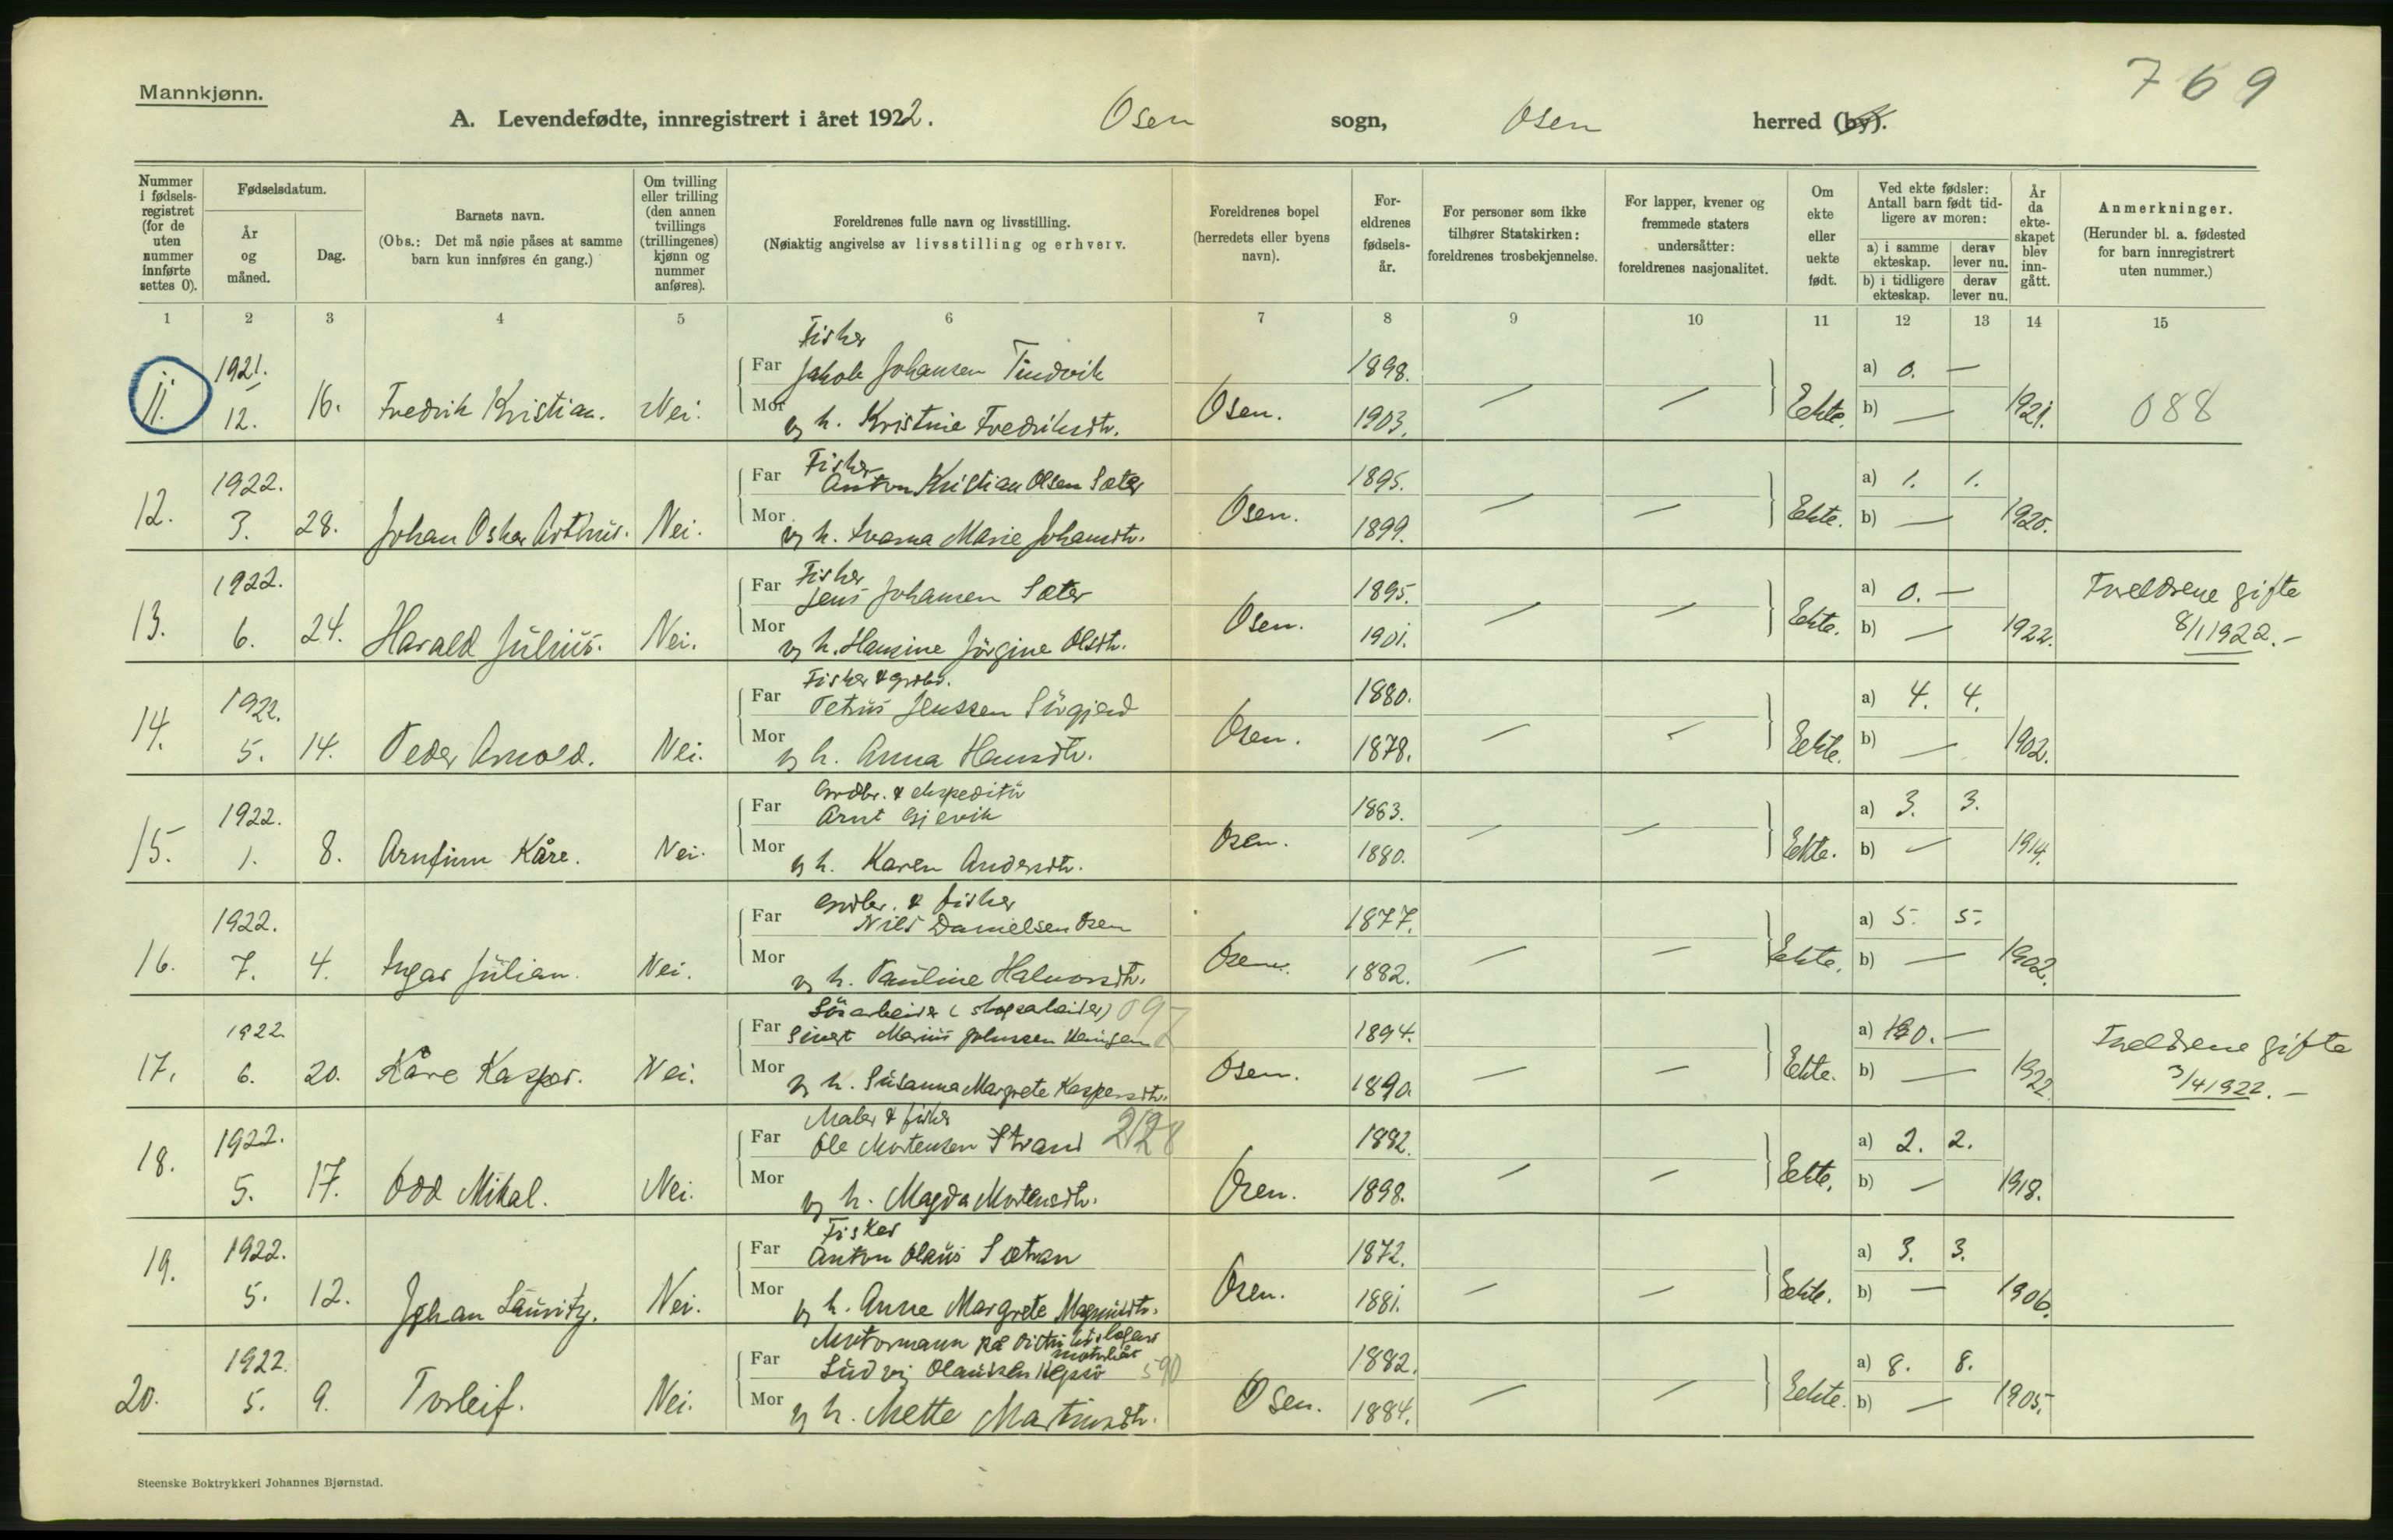 769
Mannkjønn.
A. Levendefødte, innregistrert i året 1922. Osen sogn, Osen herred (by).
Nummer i fødsels-registret (for de uten nummer innførte settes 0).
Fødselsdatum.
År og måned.
Dag.
Barnets navn.
(Obs.: Det må nøie påses at samme barn kun innføres én gang.)
Om tvilling eller trilling (den annen tvillings (trillingenes) kjønn og nummer anføres).
Foreldrenes fulle navn og livsstilling.
(Nøiaktig angivelse av livsstilling og erhverv.
Foreldrenes bopel (herredets eller byens navn).
For-eldrenes fødsels-år.
For personer som ikke tilhører Statskirken: foreldrenes trosbekjennelse.
For lapper, kvener og fremmede staters undersåtter: foreldrenes nasjonalitet.
Om ekte eller uekte født.
Ved ekte fødsler: Antall barn født tid-ligere av moren:
a) i samme ekteskap.
derav lever nu.
b) i tidligere ekteskap.
derav lever nu.
År da ekte-skapet blev inn-gått.
Anmerkninger.
(Herunder bl. a. fødested for barn innregistrert uten nummer.)
1 2 3 4 5 6 7 8 9 10 11 12 13 14 15
Fisker
1921. Far Jakob Johansen Tindvik 1898. a) 0. —
11. 12. 16. Fredrik Kristian. Nei. Mor og h. Kristine Fredriksdtr. Osen. 1903. — — Eekte. b) — 1921. 088
Fisker
1922. Far Anton Kristian Olsen Sæter 1895. a) 1. 1.
12. 3. 28. Johan Oskar Arthur. Nei. Mor og h. Ivarna Marie Johansdtr. Osen. 1899. — — Eekte. b) — 1920.
Fisker
1922. Far Jens Johansen Sæter 1895. a) 0. — Foreldrene gifte
13. 6. 24. Harald Julius. Nei. Mor og h. Hansine Jørgine Olsdtr. Osen. 1901. — — Eekte. b) — 1922. 8/1 1922. —
Fisker & grdbr.
1922. Far Petrus Jenssen Sørgjerd 1880. a) 4. 4.
14. 5. 14. Peder Arnold. Nei. Mor og h. Anna Hansdtr. Osen. 1878. — — Eekte. b) — 1902.
Grdbr. & ekspeditør
1922. Far Arnt Gjevik 1883. a) 3. 3.
15. 1. 8. Arnfinn Kåre. Nei. Mor og h. Karen Andersdtr. Osen. 1880. — — Eekte. b) — 1914.
Grdbr. & fisker
1922. Far Nils Danielsen Osen 1877. a) 5. 5.
16. 7. 4. Ingar Julian. Nei. Mor og h. Pauline Halvorsdtr. Osen. 1882. — — Eekte. b) — 1902.
Løsarbeider (skogsarbeider) 097
1922 Far Sivert Marius Johnsen 1894. a) 0. — Foreldrene gifte
17. 6. 20. Kåre Kasper. Nei. Mor og h. Susanna Margrete Kaspersdtr. Osen. 1890. — — Eekte. b) — 1922 3/4 1922. —
Maler & fisker
1922. Far Ole Mortensen Strand 2128 1882. a) 2. 2.
18. 5. 17. Odd Mikal. Nei. Mor og h. Magda Mortensdtr. Osen. 1898. — — Eekte. b) — 1918.
Fisker
1922. Far Anton Olaus Sætran 1872. a) 3. 3.
19. 5. 12. Johan Lauritz. Nei. Mor og h. Anne Margrete Magnusdtr. Osen. 1881. — — Eekte. b) — 1906.
Motormann på distriktslegens motorbåt
1922. Far Ludvig Olaussen Hepsø 590 1882. a) 8. 8.
20. 5. 9. Torleif. Nei. Mor og h. Mette Martinsdtr. Osen. 1884. — — Eekte. b) — 1905.
Steenske Boktrykkeri Johannes Bjørnstad.